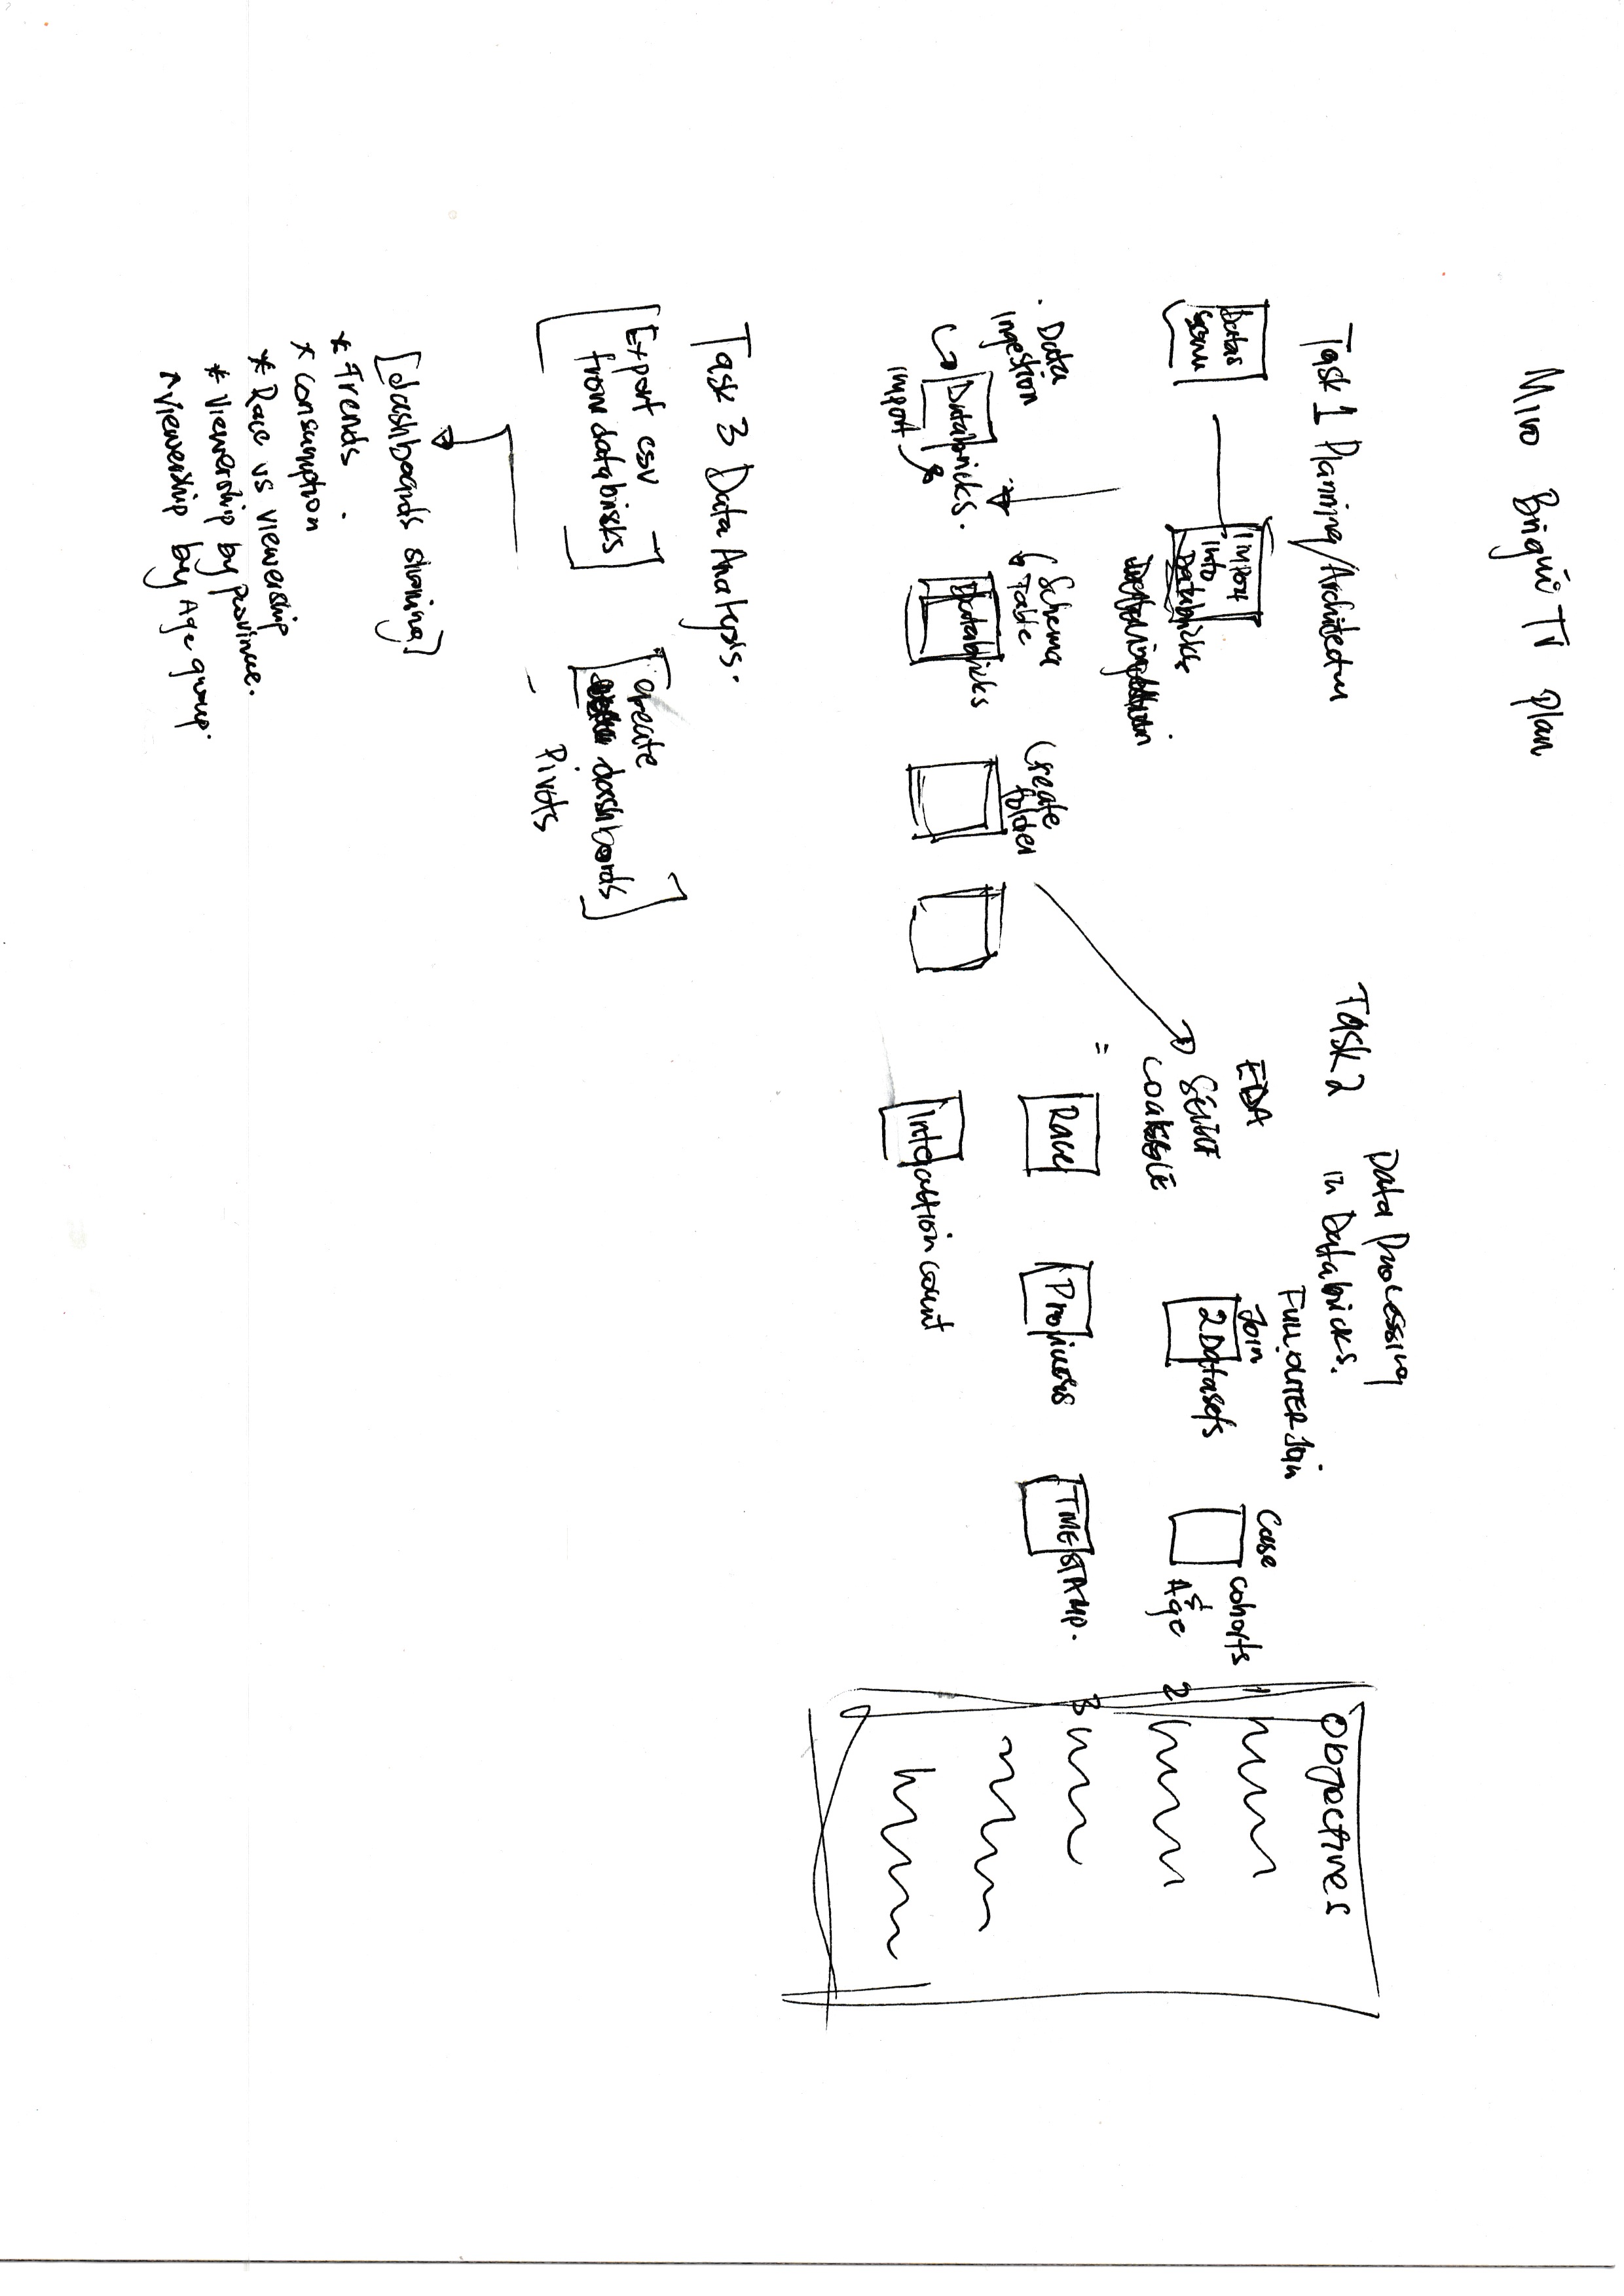 Miro BrightTV Plan
Task 1 Planning/Architectur
Import
Into
Databricks
. Data
Ingestion
Databricks.
Import
Schema
Table
Databricks
Create
folder
Task 2
Data Processing
in Databricks.
EDA
SELECT
Full OUTTER Join
Join
2 Datasets
Case
cohorts
& Age
Race
Provinces
TIMESTAMP.
Integration count
Objectives
1
2
3
Task 3 Data Analysis.
[Export csv
from databricks]
[create
dashboards]
- Pivots
[dashboards showing]
* Trends.
* Consumption
* Race vs viewership
* Viewership by province.
* viewership by Age group.